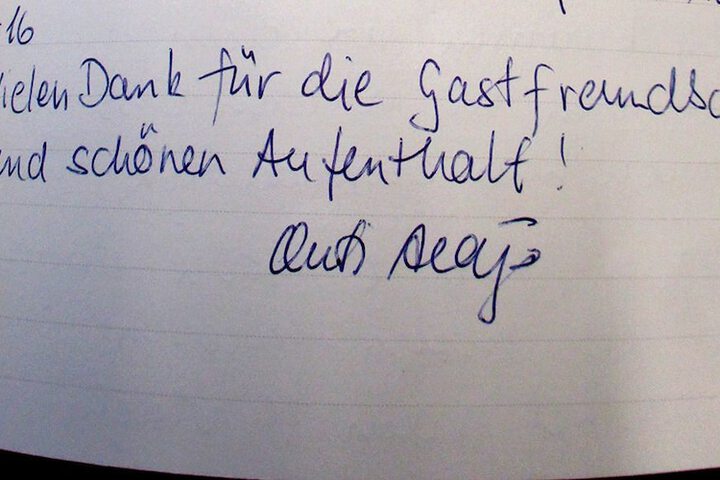 16
ielen Dank für die Gastfreundsc
nd schönen Aufenthalt!